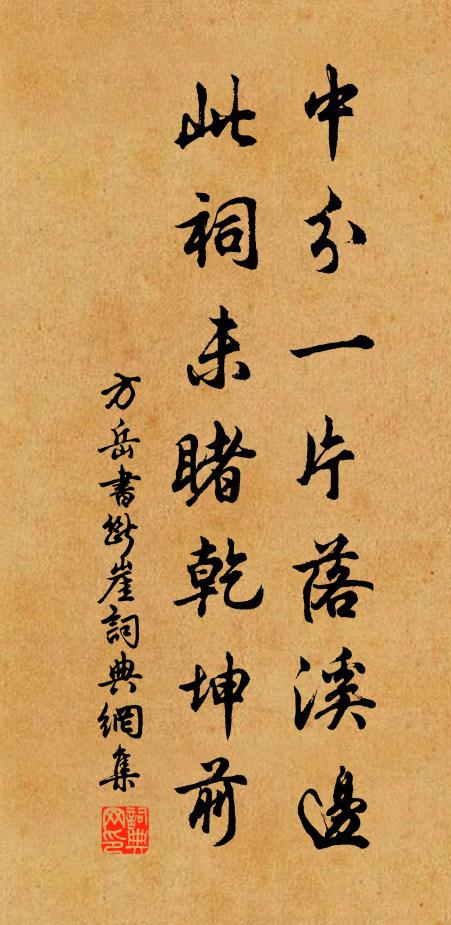 中分一片落溪邊
此祠未睹乾坤前
方岳書斷崖詞典網集
詞典
网印